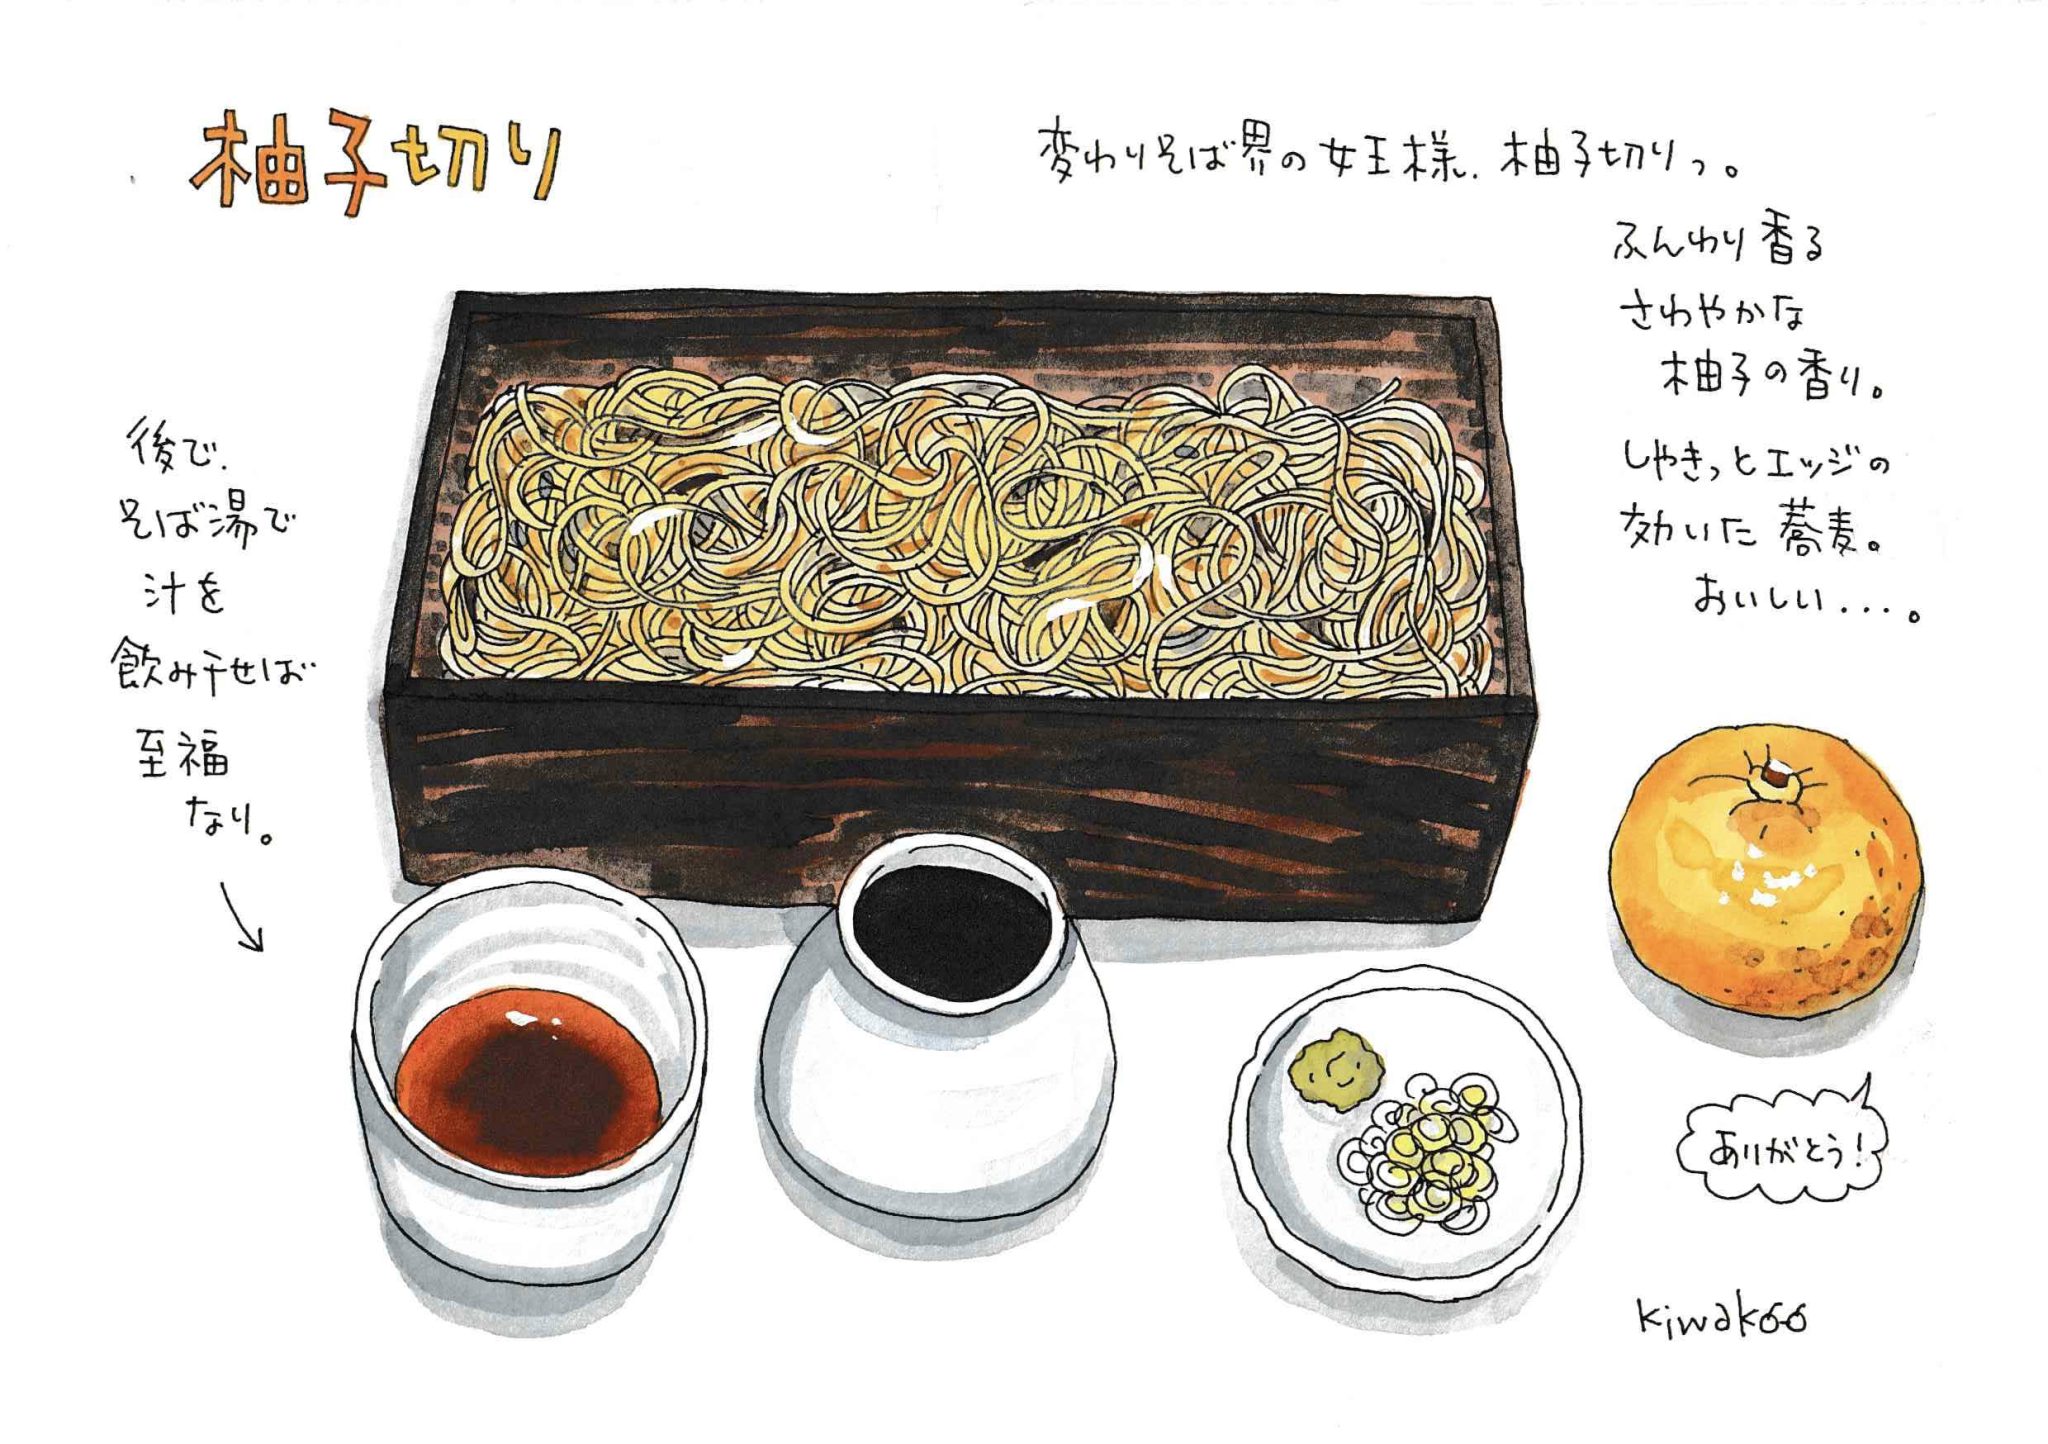 柚子切り
変わりそば界の女王様、柚子切りっ。
ふんわり香る
さわやかな
柚子の香り。
しゃきっとエッジの
効いた蕎麦。
おいしい....。
後で、
そば湯で
汁を
飲み干せば
至福
なり。
ありがとう!
kiwakoo